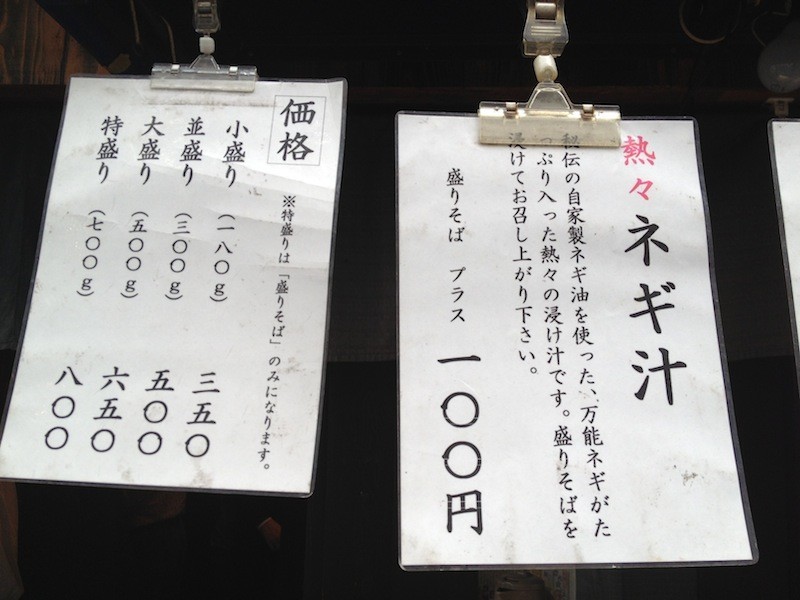 価格
※特盛りは「盛りそば」のみになります。
小盛り（一八〇g）三五〇
並盛り（三〇〇g）五〇〇
大盛り（五〇〇g）六五〇
特盛り（七〇〇g）八〇〇
熱々ネギ汁
秘伝の自家製ネギ油を使った、万能ネギがた
っぷり入った熱々の浸け汁です。盛りそばを
浸けてお召し上がり下さい。
盛りそば プラス 一〇〇円